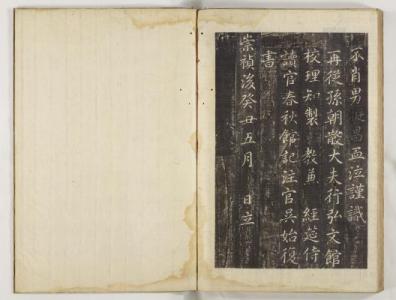 不肖男始昌孟泣謹識
再從孫朝散大夫行弘文館
校理知製 教兼 經筵侍
讀官春秋館記注官吳始復
書
崇禎後癸丑五月 日立